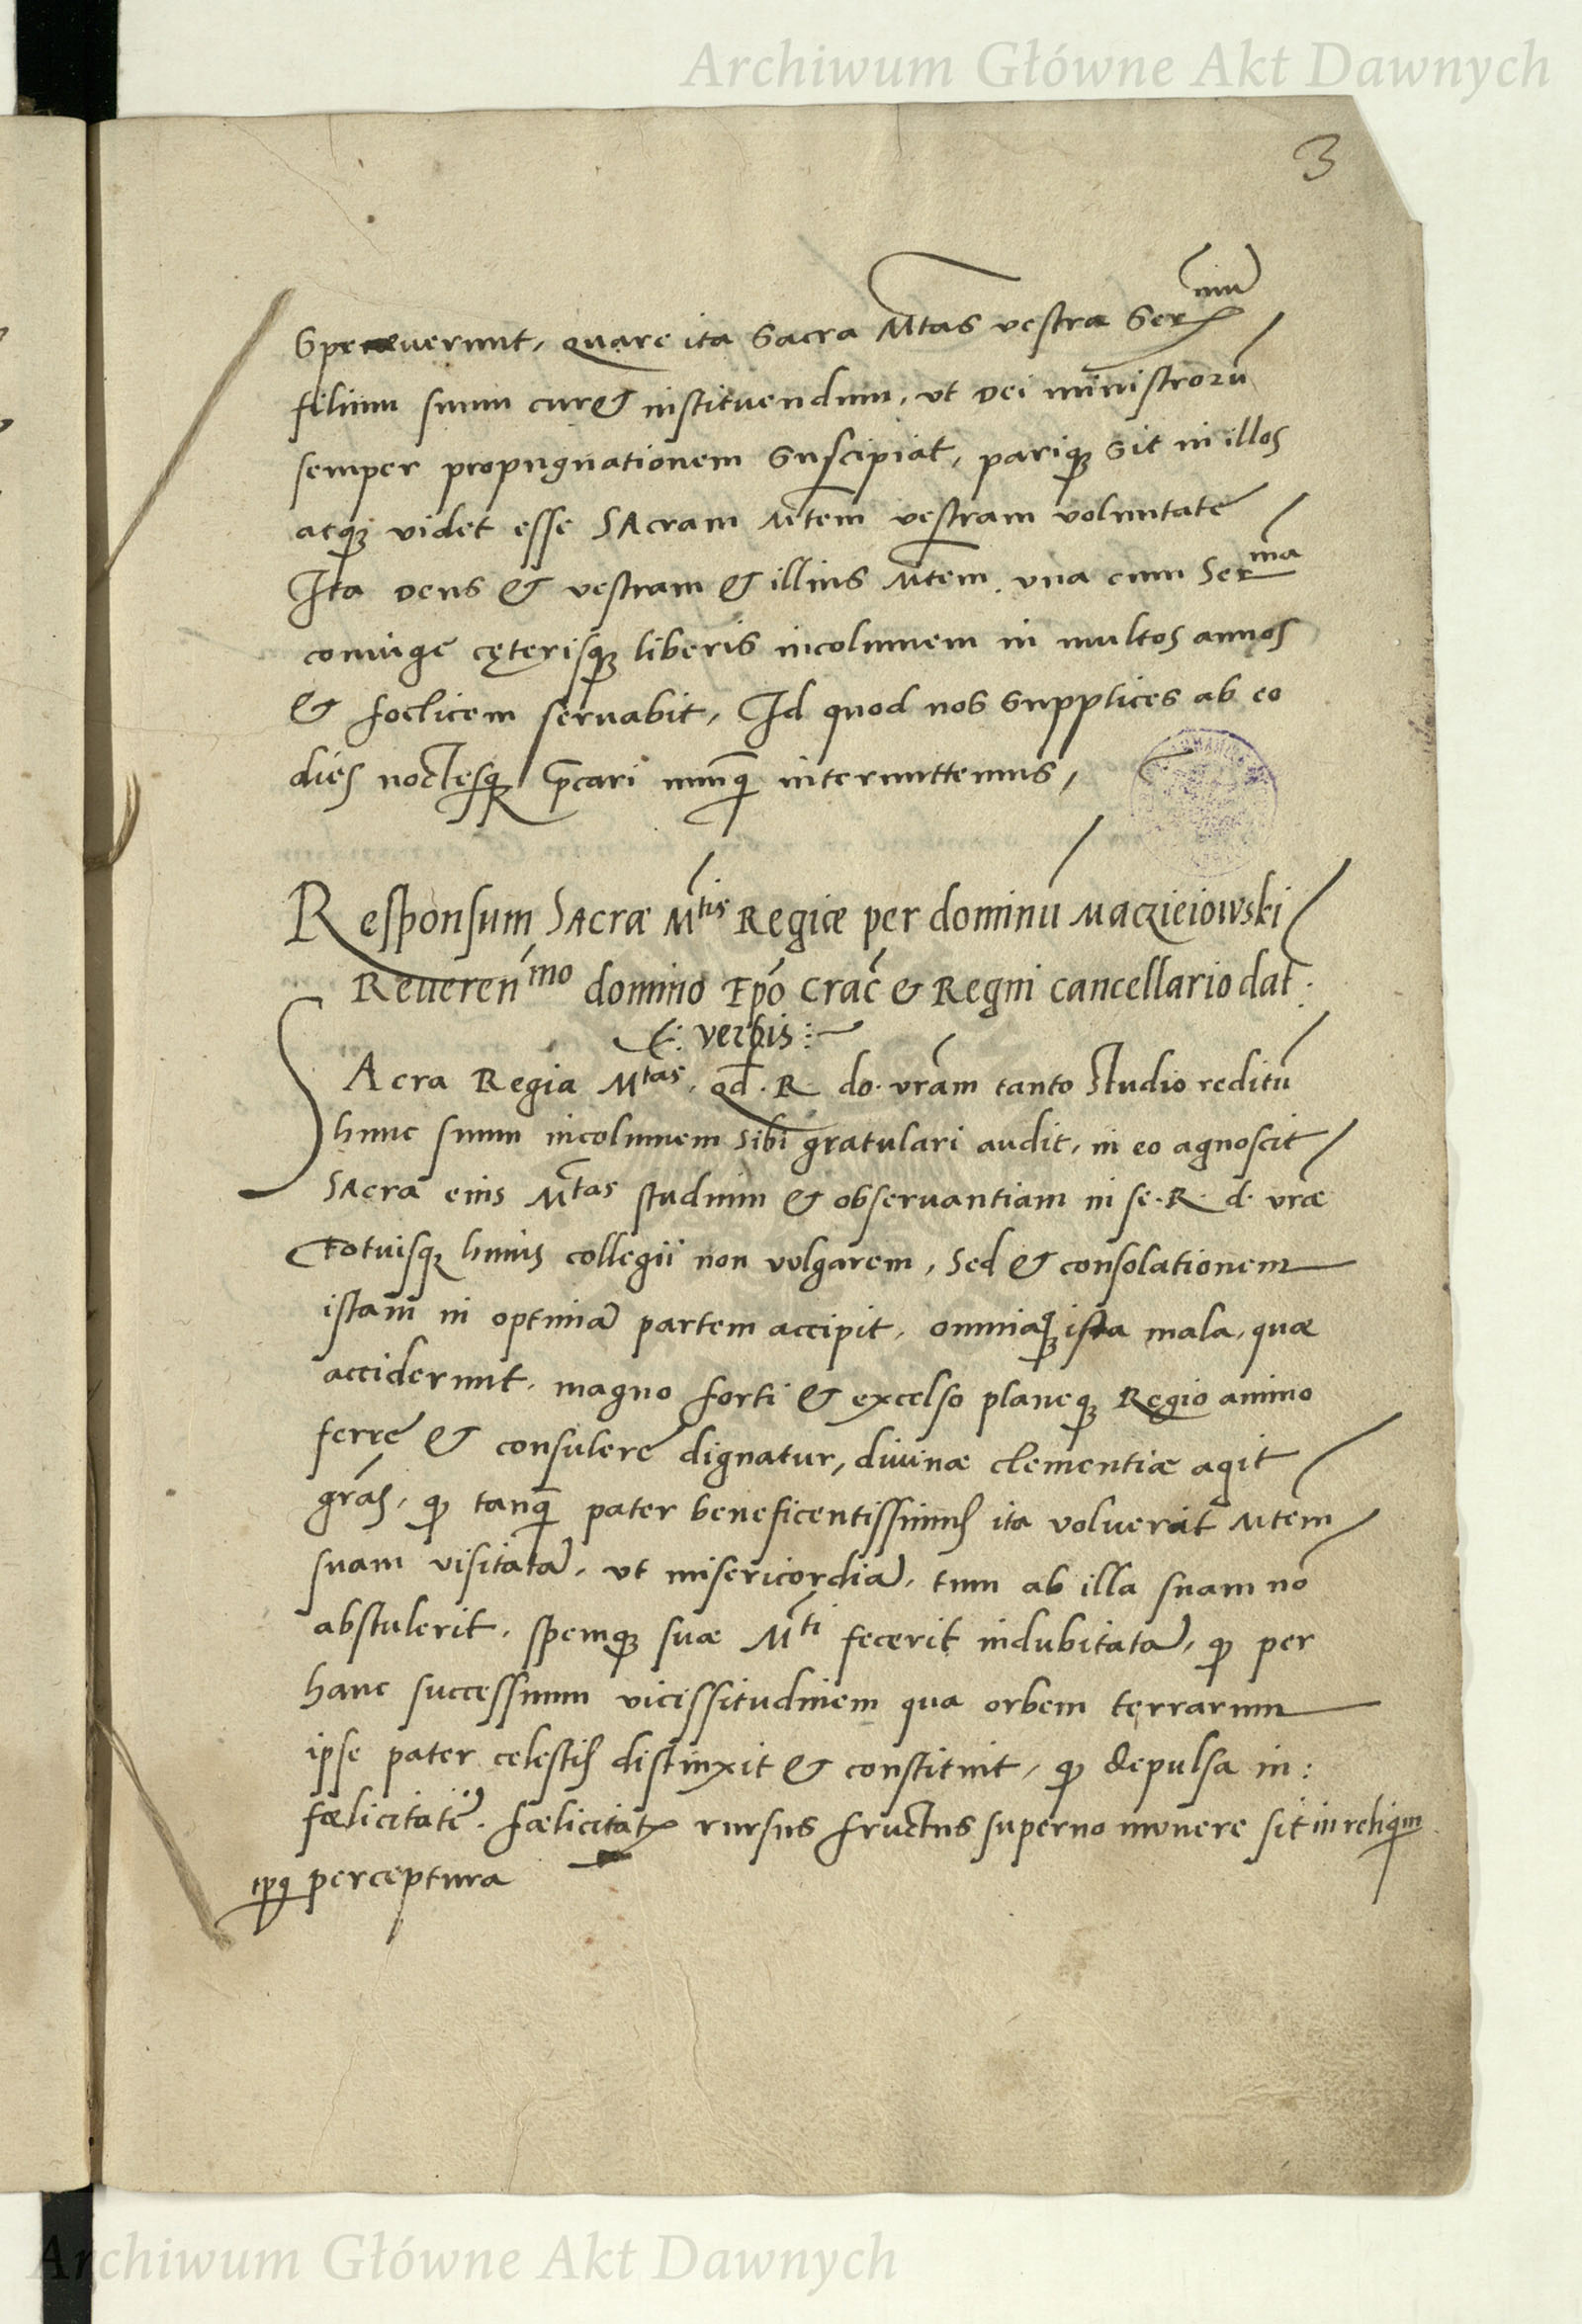 Archiwum Główne Akt Dawnych
3
quare ita Sacra Mtas vestra Ser mu
filium suum curet instituendum, ut Dei ministrorū
semper propugnationem suscipiat, pariq; sit in illos
atq; videt esse Sacram Mtem vestram voluntate
Ita Deus & vestram & illius Mtem, una cum Ser ma
coniuge cęterisq; liberis incolumem in multos annos
& foelicem servabit, Id quod nos supplices ab eo
dies noctesq; p̄cari nunq̄ intermittemus,
Responsum Sacræ Mtis Regiæ per dominū Maczieiowski
Reveren mo domino Epō Crac̄ & Regni cancellario dat:
verbis:
SAcra Regia Mtas, qđ. R. do. vrām tanto studio reditū
hunc suum incolumem sibi gratulari audit, in eo agnoscit
Sacra eius Mtas studium & observantiam in se. R. d. vræ
totiusq; huius collegii non vulgarem, Sed & consolationem
istam in optimā partem accipit, omniaq; ista mala, quæ
acciderunt, magno forti & excelso planeq; Regio animo
ferre & consulere dignatur, divinæ clementiæ agit
grās, q; tanq̄ pater beneficentissimus ita voluerit Mtem
suam visitatā, ut misericordiā, tum ab illa suam nō
abstulerit, spemq; suæ Mti fecerit indubitatā, q; per
hanc successivum vicissitudinem qua orbem terrarum
ipse pater celestis distinxit & constituit, q; depulsa in:
fælicitate. fælicitatis rursus fructus superno munere sit in reliqm
tpq perceptura
Archiwum Główne Akt Dawnych